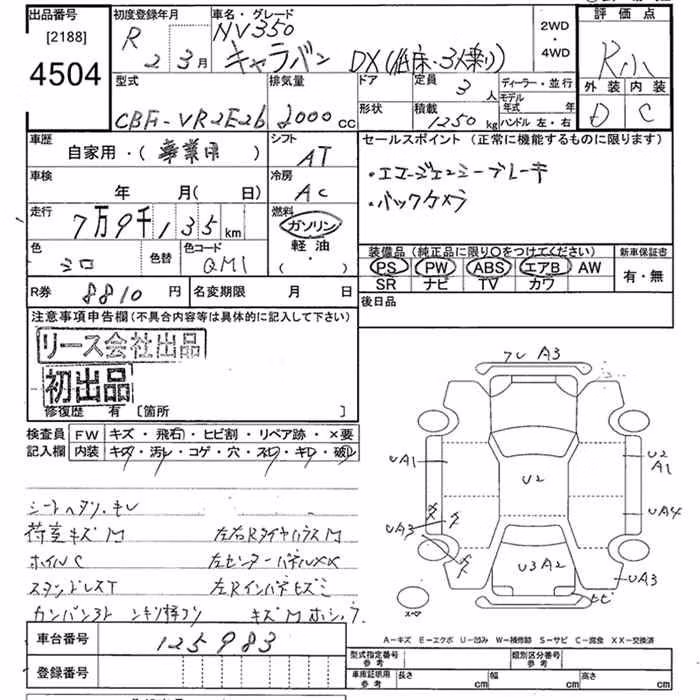 出品番号
[2188]
4504
初度登録年月
R 2 3月
車名・グレード
NV350
キャラバン DX (低床・3人乗り)
2WD
・
4WD
評価点
R小
外装 内装
D C
型式
CBF-VR2E26
排気量
2000cc
ドア
形状
定員
3人
積載
1250kg
ディーラー・並行
モデル年式 年
ハンドル 左・右
車歴
自家用・(事業用)
シフト
AT
車検
年 月(日)
冷房
AC
走行
7万9千135km
燃料
ガソリン
軽油
( ・ )
色
シロ
色替
色コード
QM1
R券 8810円
名変期限 月 日
セールスポイント (正常に機能するものに限ります)
・エマージェンシーブレーキ
・バックカメラ
装備品 (純正品に限り○をつけてください)
PS PW ABS エアB AW
SR ナビ TV カワ
新車保証書
有・無
後日品
注意事項申告欄(不具合内容等は具体的に記入して下さい)
リース会社出品
初出品
修復歴 有 [箇所 ]
検査員記入欄
FW キズ・飛石・ヒビ割・リペア跡・×要
内装 キズ・汚レ・コゲ・穴・スレ・キレ・破レ
シートヘタリ・キレ
荷室キズM 左右RタイヤハウスM
ホイルC 左センターパネルXX
左Rインパネヒズミ
キズM
フレ A3
UA1
U2
U2
A1
UA3
UA4
U3A2
UA3
サビ
A-キズ E-エクボ U-凹み W-補修跡 S-サビ C-腐食 XX-交換済
車台番号 125983
登録番号
型式指定番号 参考
類別区分番号 参考
車庫証明用 参考
長さ cm 幅 cm 高さ cm